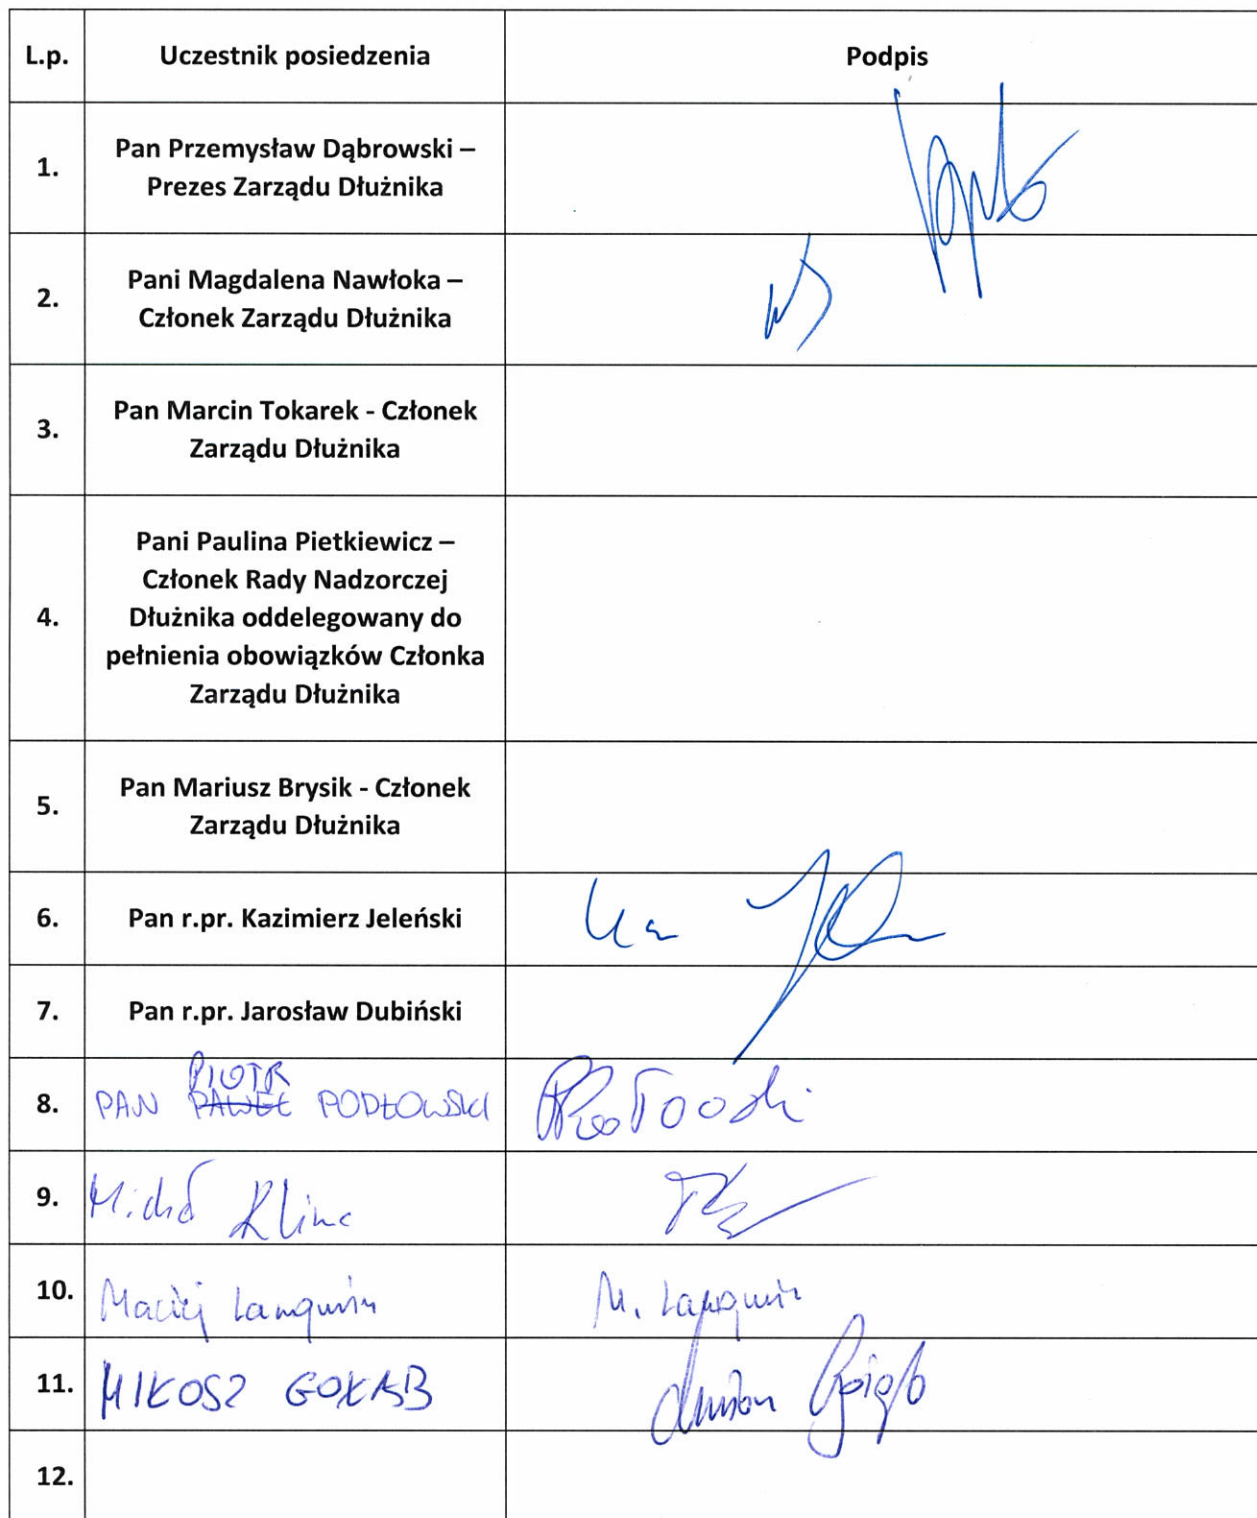 L.p. Uczestnik posiedzenia Podpis
1. Pan Przemysław Dąbrowski –
Prezes Zarządu Dłużnika
2. Pani Magdalena Nawłoka –
Członek Zarządu Dłużnika
3. Pan Marcin Tokarek - Członek
Zarządu Dłużnika
4. Pani Paulina Pietkiewicz –
Członek Rady Nadzorczej
Dłużnika oddelegowany do
pełnienia obowiązków Członka
Zarządu Dłużnika
5. Pan Mariusz Brysik - Członek
Zarządu Dłużnika
6. Pan r.pr. Kazimierz Jeleński
7. Pan r.pr. Jarosław Dubiński
PIOTR
8. PAN PAWEŁ PODŁOWSKI
9. Michał
10. Maciej
11. MIŁOSZ GOŁĄB
12.